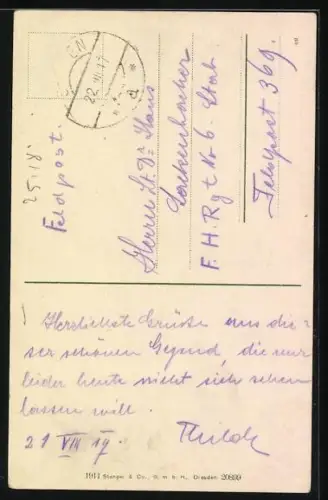 EN
22. VII. 17
* a *
25.18.
Feldpost.
Herrn Lt. Dr. Hans
F. H. Rgt No 6. Stab.
Feldpost 369.
Herzlichste Grüsse aus die=
ser schönen Gegend, die nur
leider heute nicht sich sehen
lassen will.
21 VIII 17. Thilde
1911 Stengel & Co., G. m. b. H., Dresden 20899